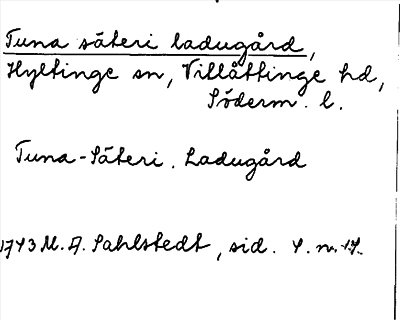 Tuna säteri ladugård,
Hyltinge sn, Villåttinge hd,
Söderm. l.
Tuna-Säteri. Ladugård
1743 M. A. Sahlstedt, sid. 4. n. 17.